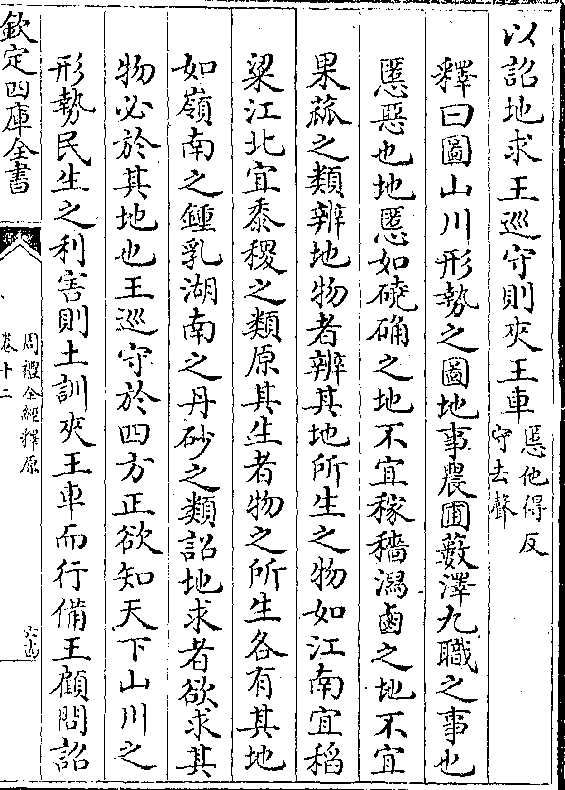 以詔地求王巡守則夾王車慝他得反
守去聲
釋曰圖山川形勢之圖地事農圃藪澤九職之事也
慝惡也地慝如磽确之地不宜稼穡潟鹵之地不宜
果蓏之類辨地物者辨其地所生之物如江南宜稻
粱江北宜黍稷之類原其生者物之所生各有其地
如嶺南之鍾乳湖南之丹砂之類詔地求者欲求其
物必於其地也王巡守於四方正欲知天下山川之
形勢民生之利害則土訓夾王車而行備王顧問詔
欽定四庫全書
周禮全經釋原
卷十二